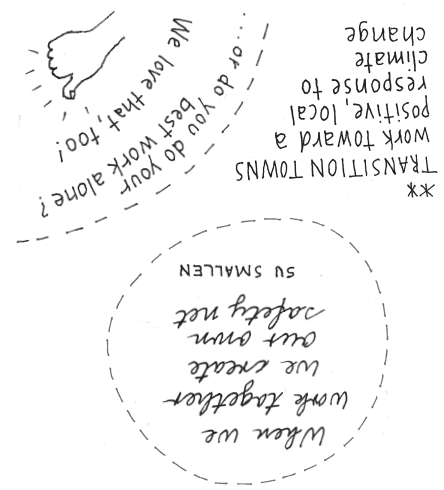 When we
work together
we create
our own
safety net
SU SMALLEN
**
TRANSITION TOWNS
work toward a
positive, local
response to
climate
change
...or do you do your
best work alone?
We love that, too!